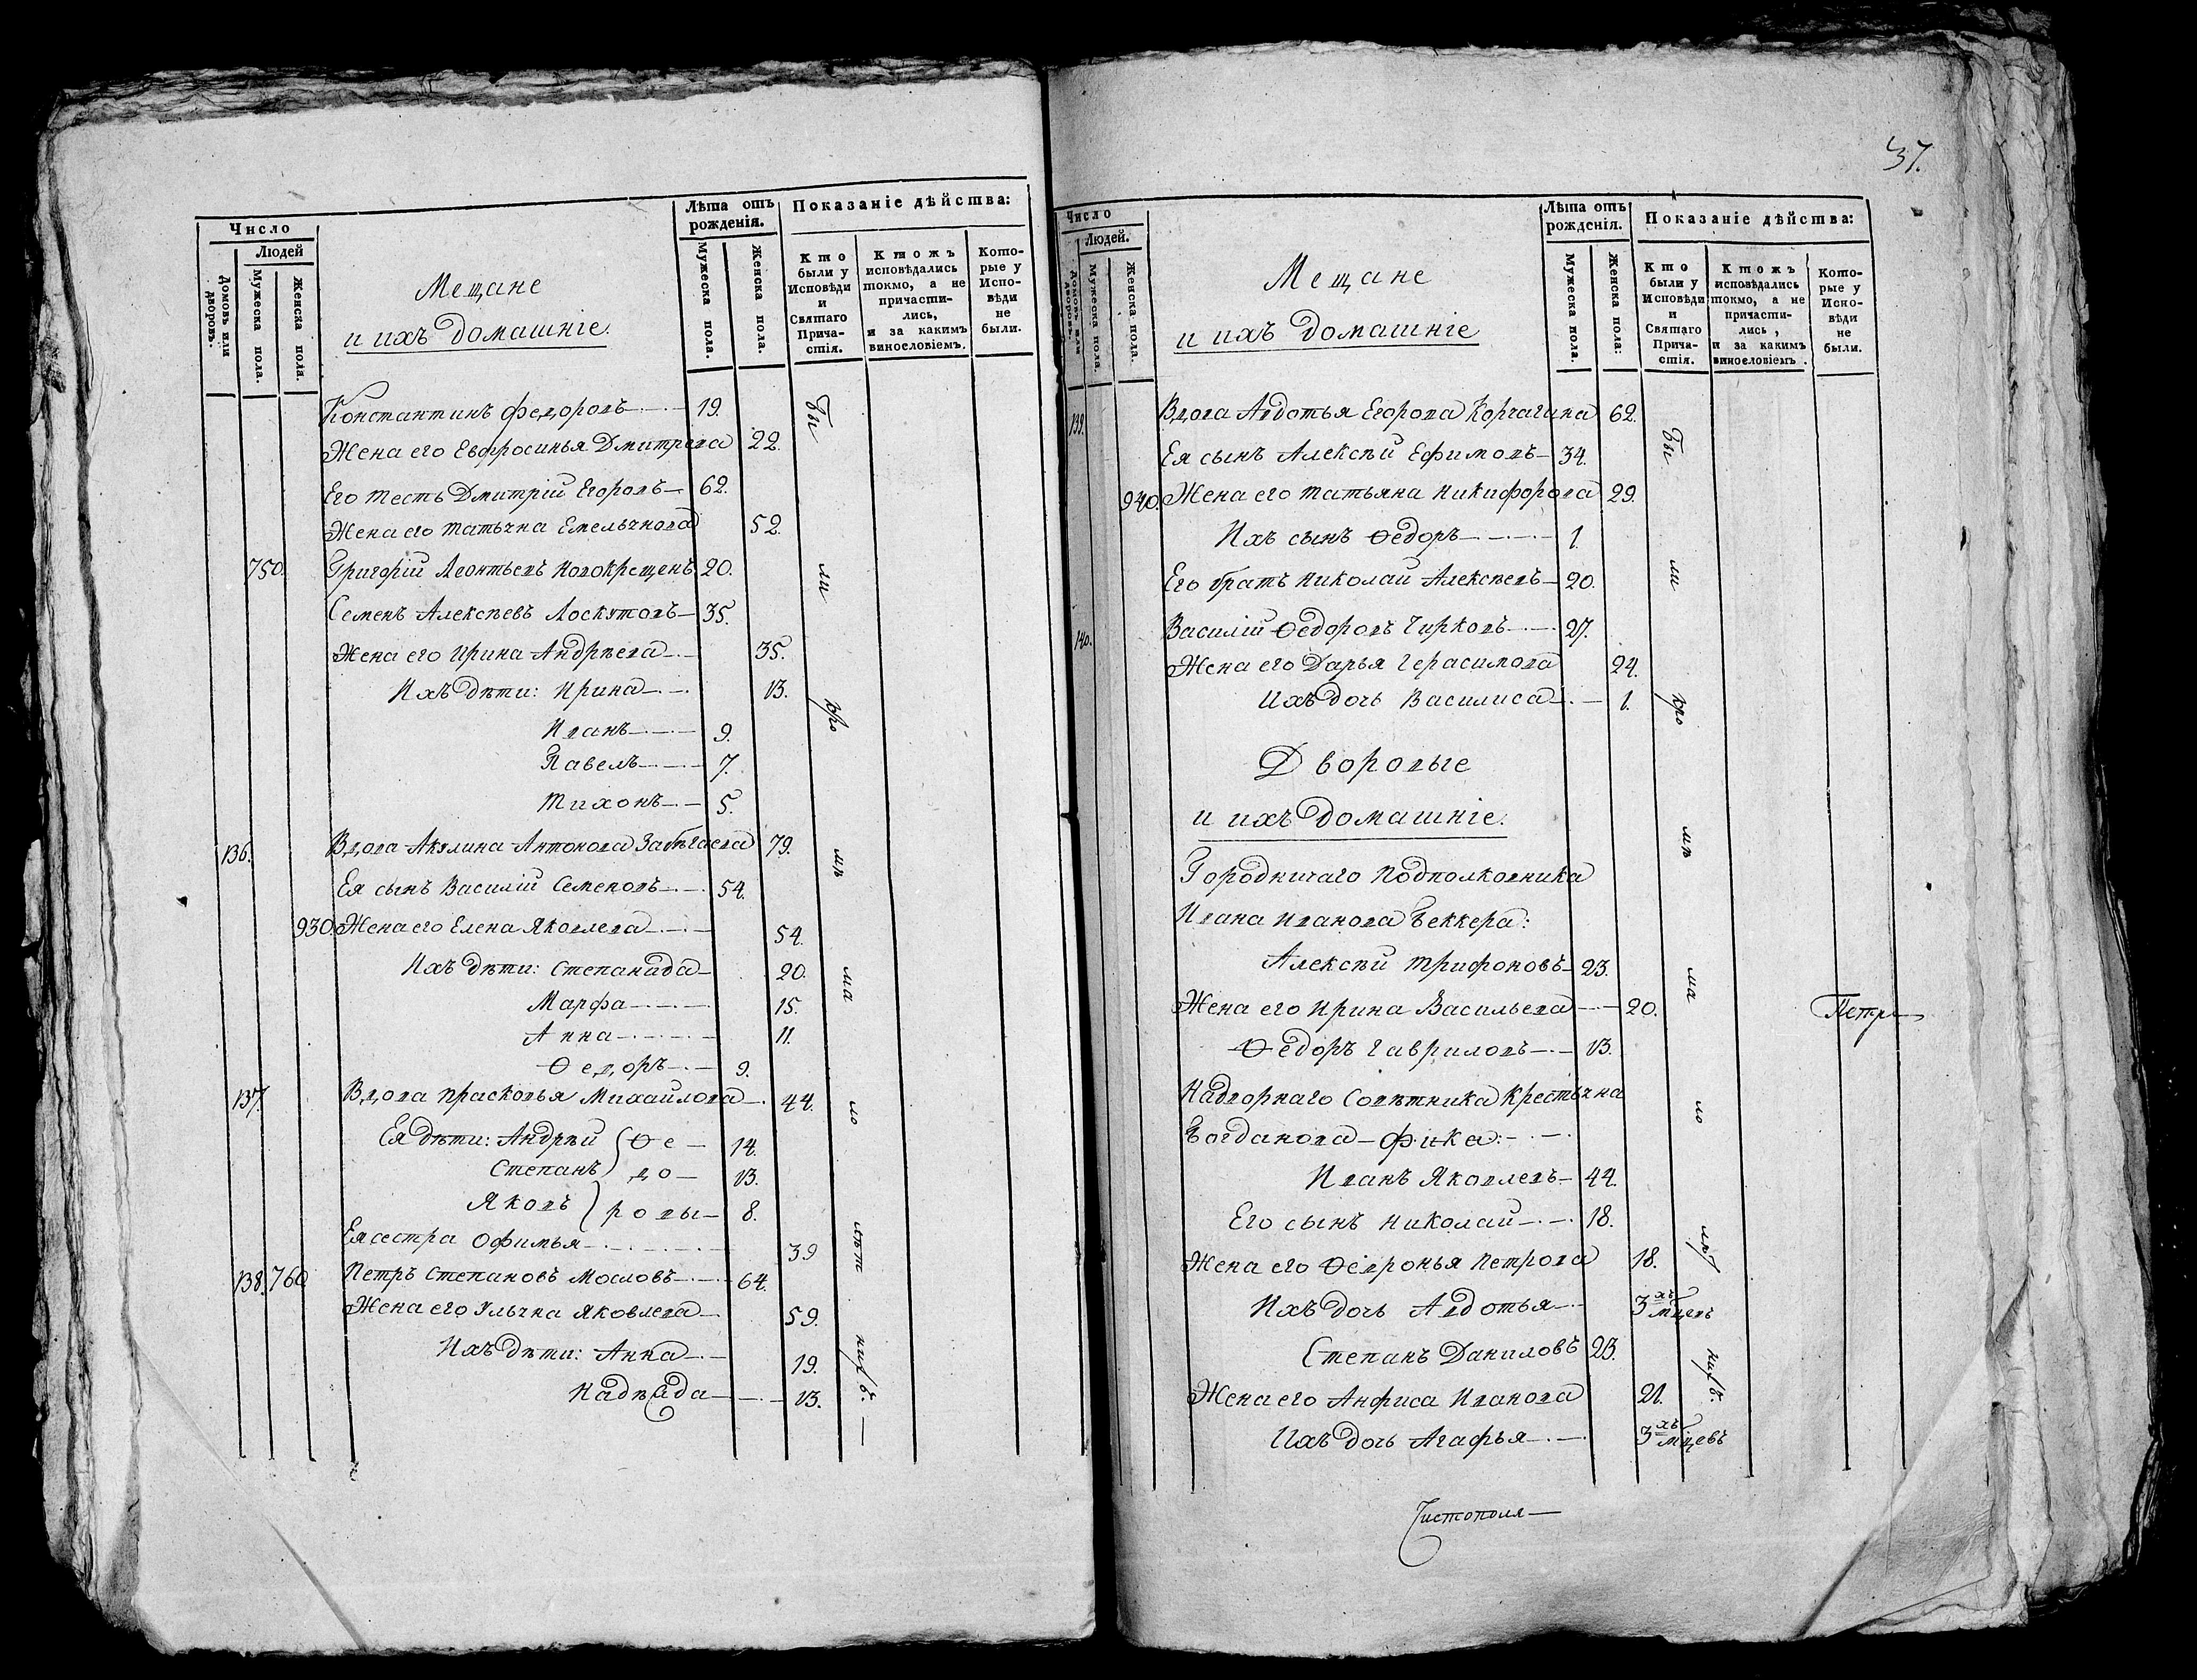 Число
Людей
Домовъ или дворовъ.
Мужеска пола.
Женска пола.
Мещане
и ихъ домашніе.
Лѣта отъ рожденія.
Мужеска пола.
Женска пола.
Показаніе дѣйства:
Кто были у Исповѣди и Святаго Прича-стія.
Ктожъ исповѣдались токмо, а не причасти-лись, и за какимъ винословіемъ.
Кото-рые у Испо-вѣди не были.
Константинъ Федоровъ 19.
Жена его Евфросинья Дмитрева 22.
Его тесть Дмитрій Егоровъ 62.
Жена его Татьяна Емельянова 52.
750. Григорій Леонтьевъ Новокрещенъ 20.
Семенъ Алексѣевъ Лоскутовъ 35.
Жена его Ирина Андрѣева 35.
Ихъ дѣти: Ирина 13.
Иванъ 9.
Павелъ 7.
Тихонъ 5.
136. Вдова Акулина Антонова Забѣгаева 79.
Ея сынъ Василій Семеновъ 54.
930. Жена его Елена Яковлева 54.
Ихъ дѣти: Степанида 20.
Марфа 15.
Анна 11.
Ѳедоръ 9.
137. Вдова Прасковья Михайлова 44.
Ея дѣти: Андрѣй Ѳе 14.
Степанъ до 13.
Яковъ ровы 8.
Ея сестра Офимья 39
138. 760 Петръ Степановъ Мословъ 64.
Жена его Ульяна Яковлева 59.
Ихъ дѣти: Анна 19.
Надѣжда 13.
бы
ли
37.
Число
Людей.
Домовъ или дворовъ.
Мужеска пола.
Женска пола.
Мещане
и ихъ домашніе
Лѣта отъ рожденія.
Мужеска пола.
Женска пола:
Показаніе дѣйства:
Кто были у Исповѣди и Святаго Прича-стія.
Ктожъ исповѣдались токмо, а не причасти-лись, и за какимъ винословіемъ.
Кото-рые у Испо-вѣди не были.
139. Вдова Авдотья Егорова Корчагина 62.
Ея сынъ Алексѣй Ефимовъ 34.
940. Жена его Татьяна Никифорова 29.
Ихъ сынъ Ѳедоръ 1.
Его братъ Николай Алексѣевъ 20.
140. Василій Ѳедоровъ Чирковъ 27.
Жена его Дарья Герасимова 24.
Ихъ дочь Василиса 1.
Дворовые
и ихъ домашніе.
Городничаго Подполковника
Ивана Иванова Беккера:
Алексѣй Трифоновъ 23.
Жена его Ирина Васильева 20.
Ѳедоръ Гавриловъ 13.
Надворнаго Совѣтника Крестьяна
Богданова Фика:
Иванъ Яковлевъ 44.
Его сынъ Николай 18.
Жена его Ѳевронья Петрова 18.
Ихъ дочь Авдотья 3хъ мцевъ
Степанъ Даниловъ 23.
Жена его Анфиса Иванова 21.
Ихъ дочь Агафья 3хъ мцевъ
бы
ли
Петръ
Чистополя